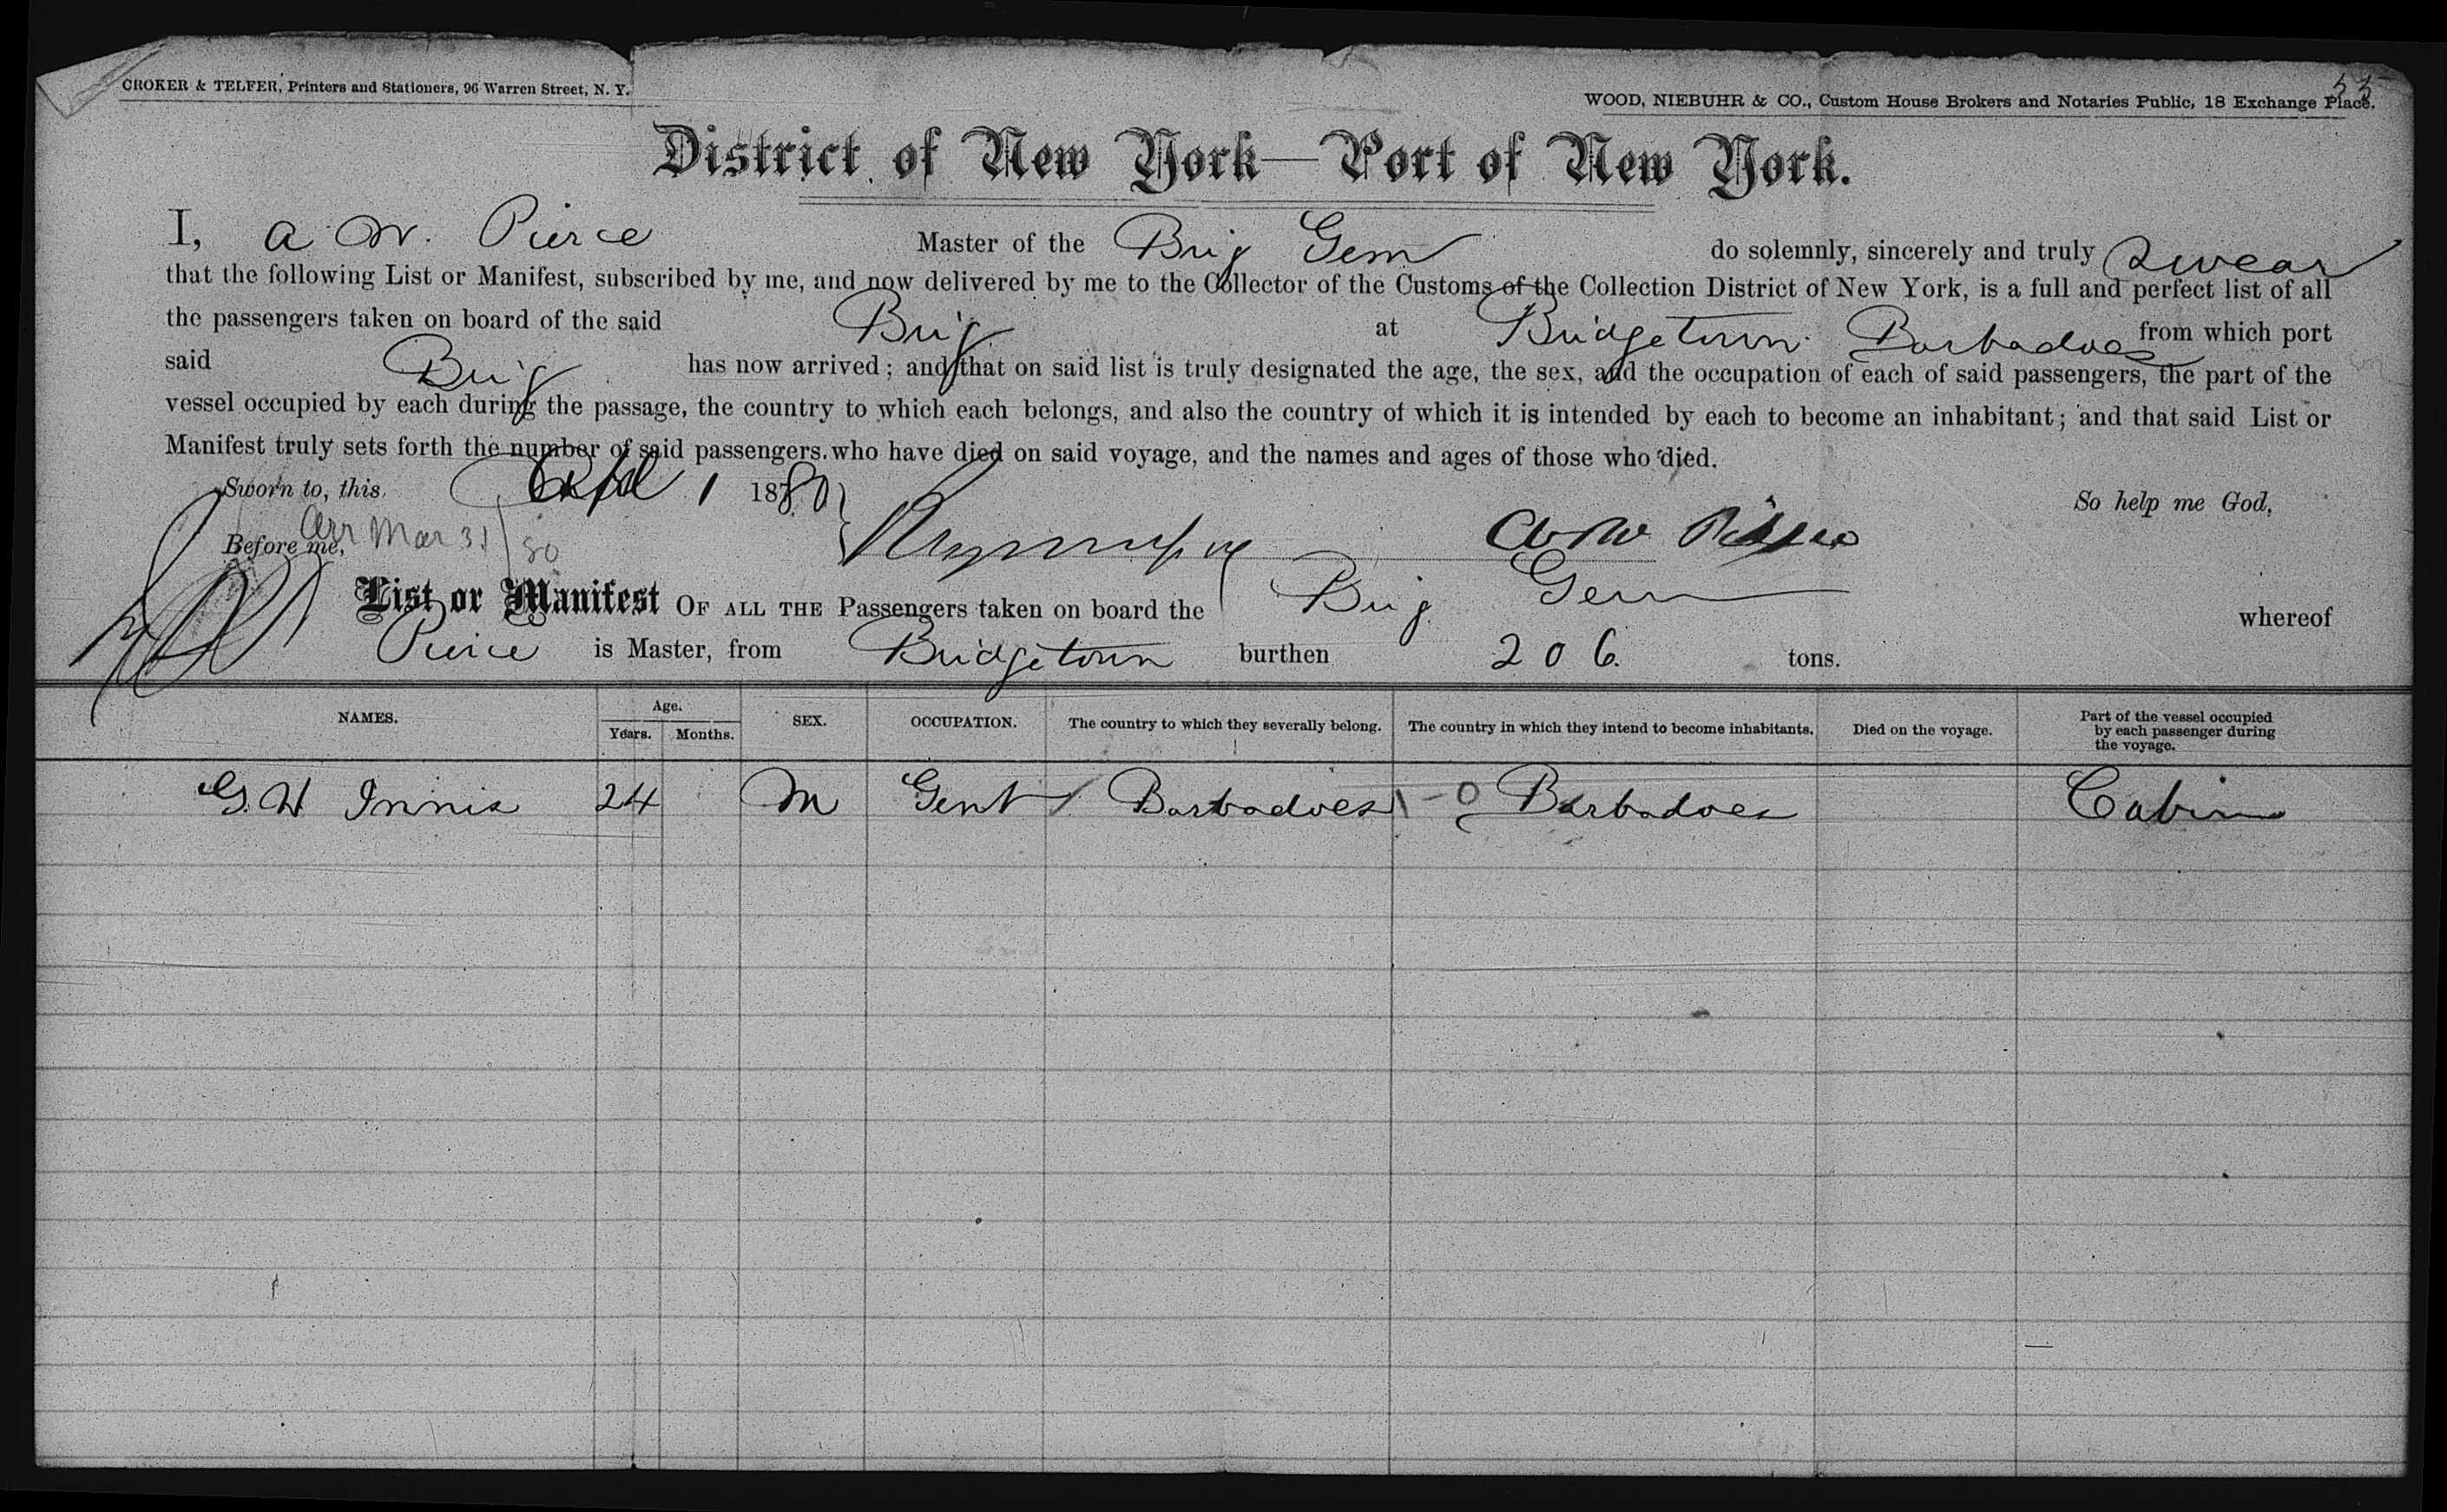 55
CROKER & TELFER, Printers and Stationers, 96 Warren Street, N. Y.
WOOD, NIEBUHR & CO., Custom House Brokers and Notaries Public, 18 Exchange Place.
District of New York—Port of New York.
I, A W. Pierce Master of the Brig Gem do solemnly, sincerely and truly Swear
that the following List or Manifest, subscribed by me, and now delivered by me to the Collector of the Customs of the Collection District of New York, is a full and perfect list of all
the passengers taken on board of the said Brig at Bridgetown. Barbadoes from which port
said Brig has now arrived; and that on said list is truly designated the age, the sex, and the occupation of each of said passengers, the part of the
vessel occupied by each during the passage, the country to which each belongs, and also the country of which it is intended by each to become an inhabitant; and that said List or
Manifest truly sets forth the number of said passengers who have died on said voyage, and the names and ages of those who died.
Sworn to, this 1 1880 So help me God,
Arr Mar 31/80
Before me, A W Pierce
List or Manifest OF ALL THE Passengers taken on board the Brig Gem whereof
Pierce is Master, from Bridgetown burthen 206 tons.
NAMES. Age. Years. Months. SEX. OCCUPATION. The country to which they severally belong. The country in which they intend to become inhabitants. Died on the voyage. Part of the vessel occupied by each passenger during the voyage.
G. W Innis 24 M Gent / Barbadoes 1-0 Barbadoes Cabin